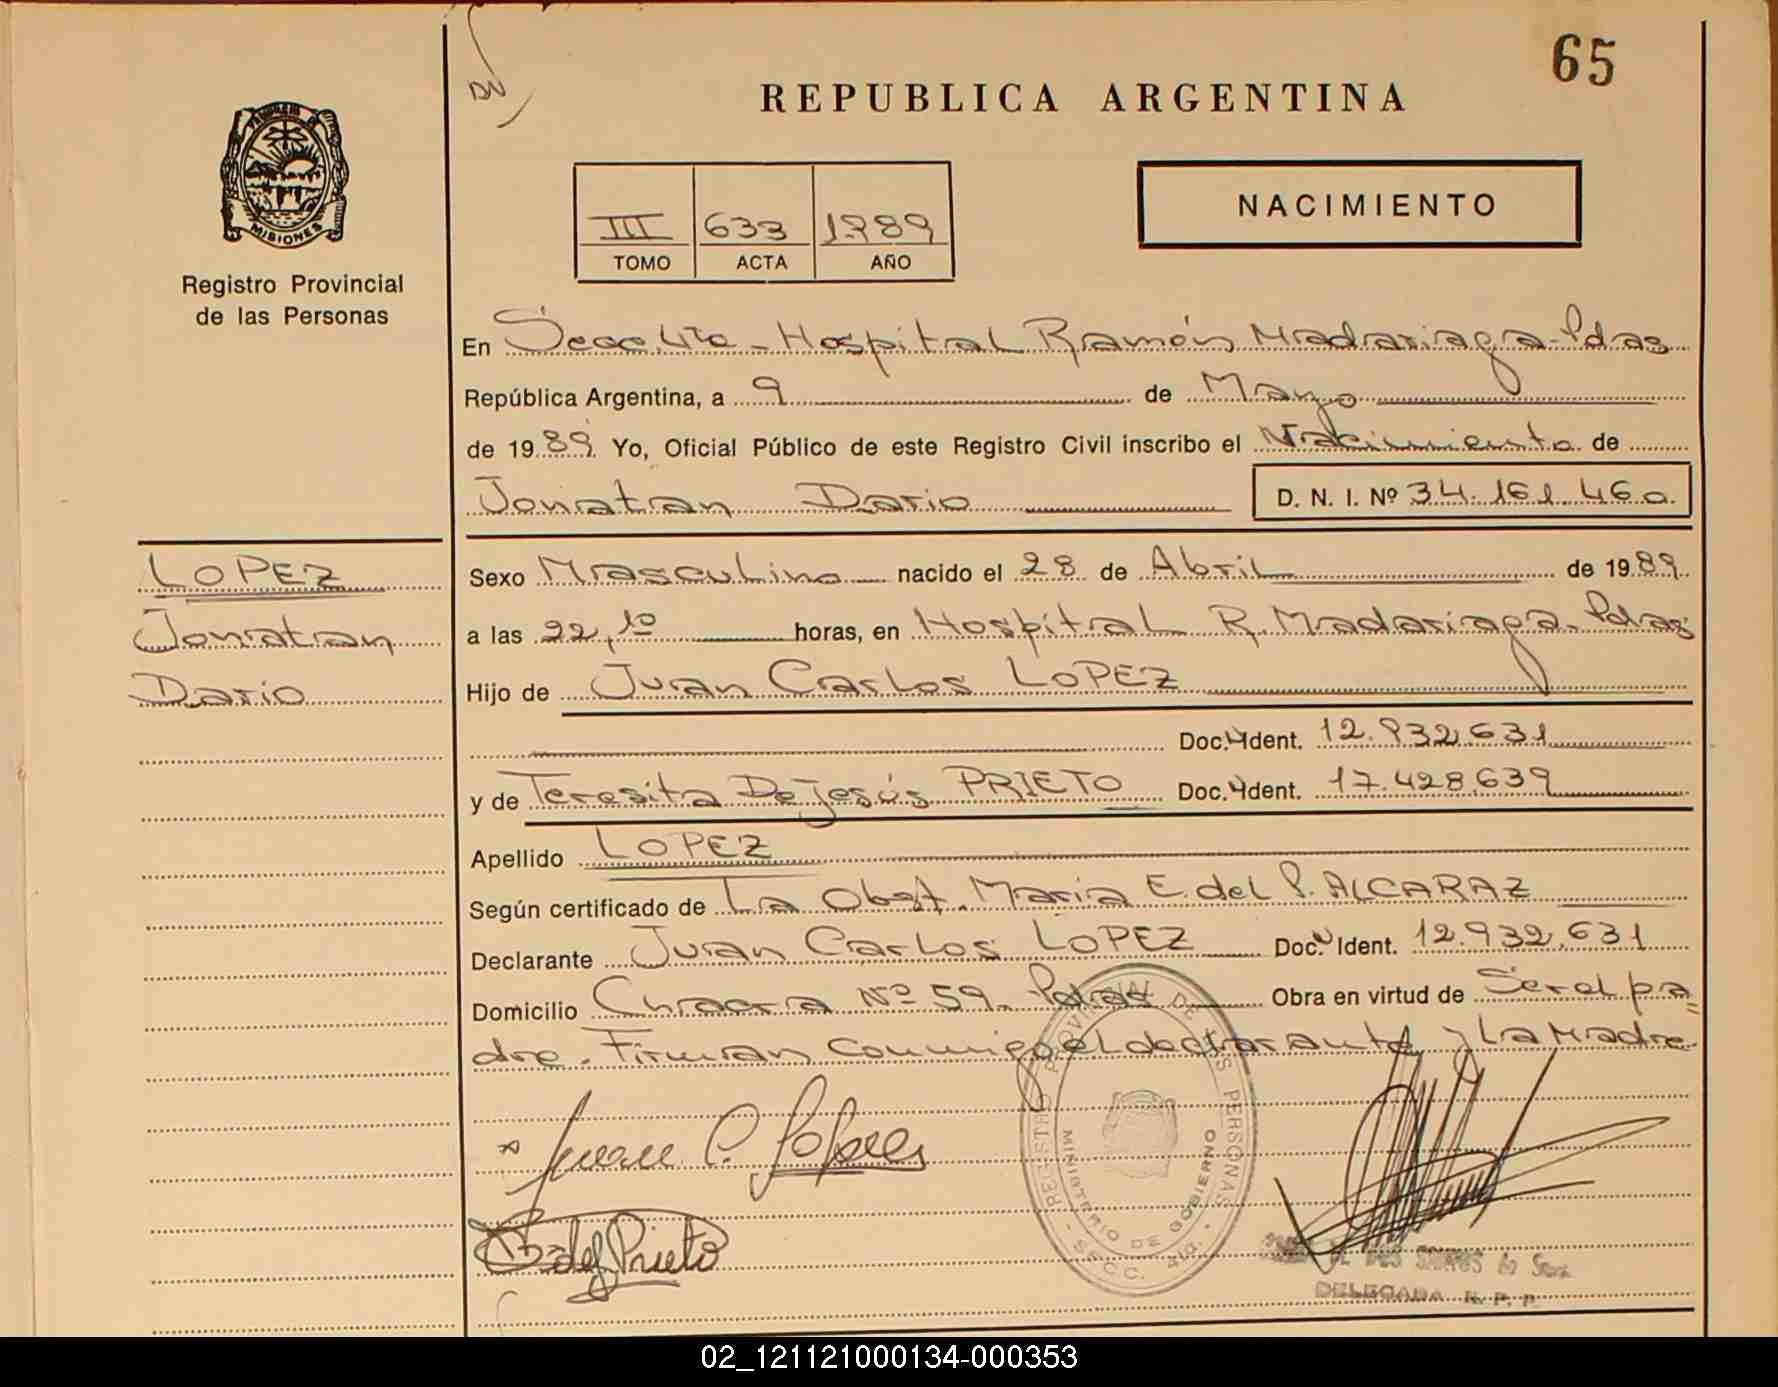 65
REPUBLICA ARGENTINA
MISIONES
Registro Provincial
de las Personas
III 633 1989
TOMO ACTA AÑO
NACIMIENTO
En Secc. 4ta - Hospital Ramón Madariaga - Pdas
República Argentina, a 9 de Mayo
de 1989 Yo, Oficial Público de este Registro Civil inscribo el Nacimiento de
Jonatan Dario D. N. I. Nº 34.161.460
LOPEZ
Jonatan
Dario
Sexo Masculino nacido el 28 de Abril de 1989
a las 22,10 horas, en Hospital R. Madariaga - Pdas
Hijo de Juan Carlos LOPEZ
Doc. Ident. 12.932.631
y de Teresita De Jesús PRIETO Doc. Ident. 17.428.639
Apellido LOPEZ
Según certificado de La Obst. Maria E. del P. ALCARAZ
Declarante Juan Carlos LOPEZ Doc. Ident. 12.932.631
Domicilio Chacra Nº 59 - Pdas Obra en virtud de Ser el pa
dre. Firman conmigo el declarante y la Madre
Juan C. Lopez
del Prieto
REGISTRO PROVINCIAL DE LAS PERSONAS
MINISTERIO DE GOBIERNO
SECC. 4ta.
DELEGADA R. P. P.
02_121121000134-000353